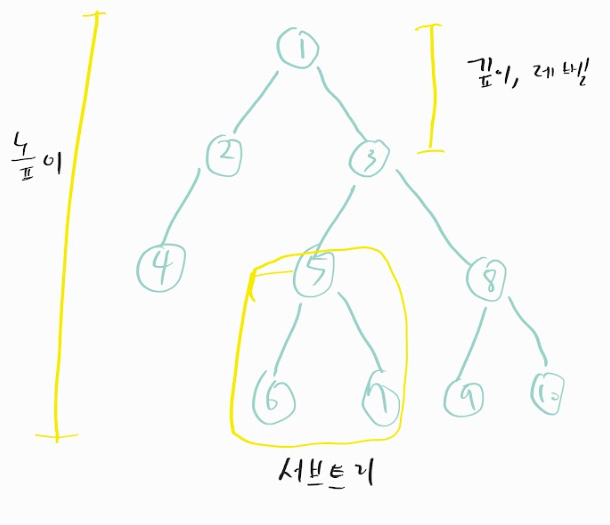 1
깊이, 레벨
높이
2
3
4
5
8
6
7
9
10
서브트리